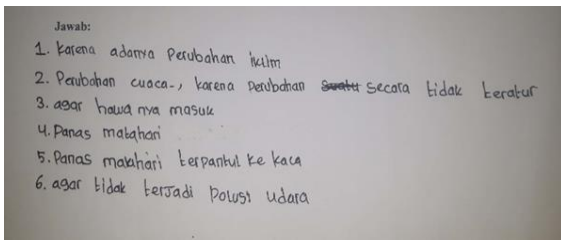 Jawab:
1. Karena adanya Perubahan iklim
2. Perubahan cuaca-, karena perubahan suatu secara tidak teratur
3. agar hawa nya masuk
4. Panas matahari
5. Panas matahari terpantul ke kaca
6. agar tidak terjadi Polusi udara